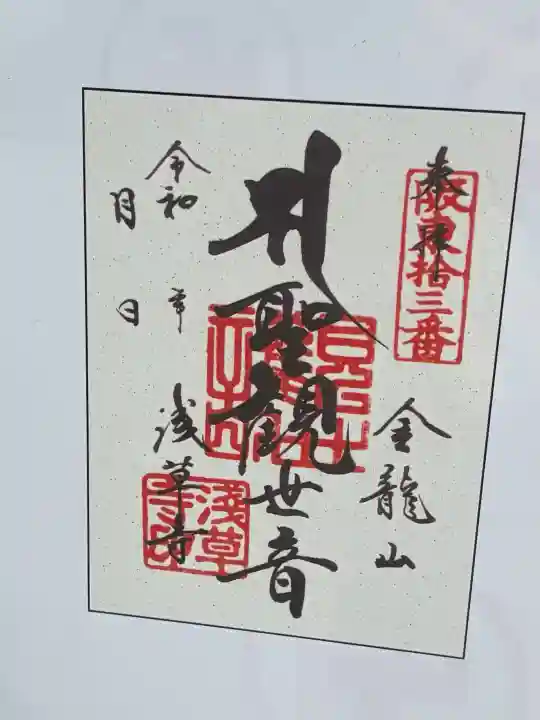 奉拝
坂東拾三番
金龍山
聖観世音
淺草
令和 年
浅草寺
月 日